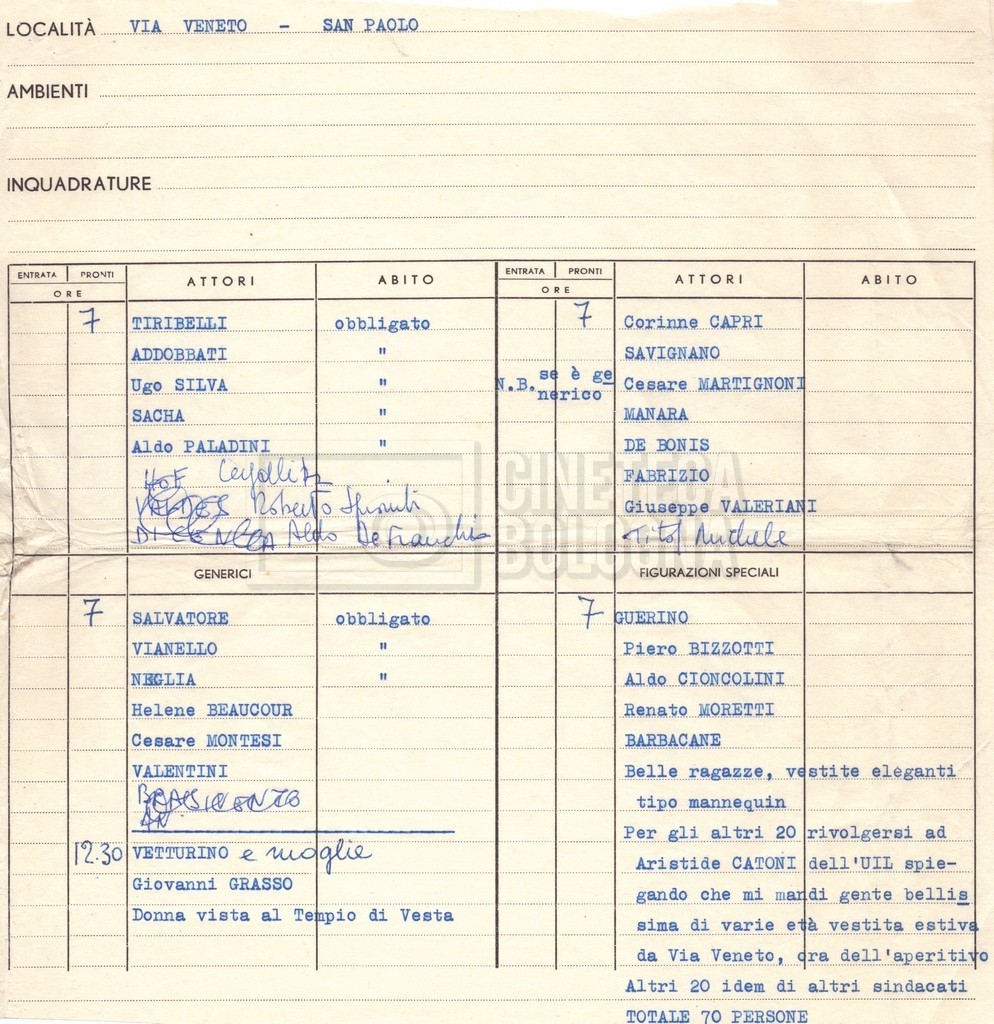 LOCALITÀ VIA VENETO - SAN PAOLO
AMBIENTI
INQUADRATURE
ENTRATA PRONTI
ORE
ATTORI ABITO
7 TIRIBELLI obbligato
ADDOBBATI "
Ugo SILVA "
SACHA "
Aldo PALADINI "
HOF
VALDES Roberto
Aldo De Franchis
ENTRATA PRONTI
ORE
ATTORI ABITO
7 Corinne CAPRI
SAVIGNANO
N.B. se è ge
nerico
Cesare MARTIGNONI
MANARA
DE BONIS
FABRIZIO
Giuseppe VALERIANI
Tito Michele
CINETECA
BOLOGNA
GENERICI
7 SALVATORE obbligato
VIANELLO "
NEGLIA "
Helene BEAUCOUR
Cesare MONTESI
VALENTINI
12.30 VETTURINO e moglie
Giovanni GRASSO
Donna vista al Tempio di Vesta
FIGURAZIONI SPECIALI
7 GUERINO
Piero BIZZOTTI
Aldo CIONCOLINI
Renato MORETTI
BARBACANE
Belle ragazze, vestite eleganti
tipo mannequin
Per gli altri 20 rivolgersi ad
Aristide CATONI dell'UIL spie-
gando che mi mandi gente bellis
sima di varie età vestita estiva
da Via Veneto, ora dell'aperitivo
Altri 20 idem di altri sindacati
TOTALE 70 PERSONE